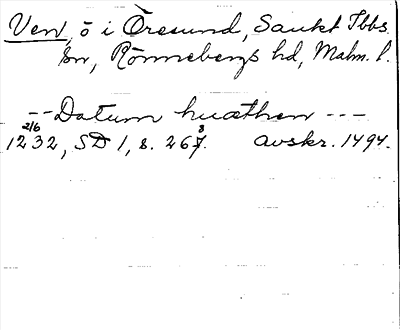 Ven, ö i Öresund, Sankt Ibbs
sn, Rönnebergs hd, Malm. l.
-- Datum huæthen ---
1232, 2/6 SD 1, s. 267. avskr. 1494.